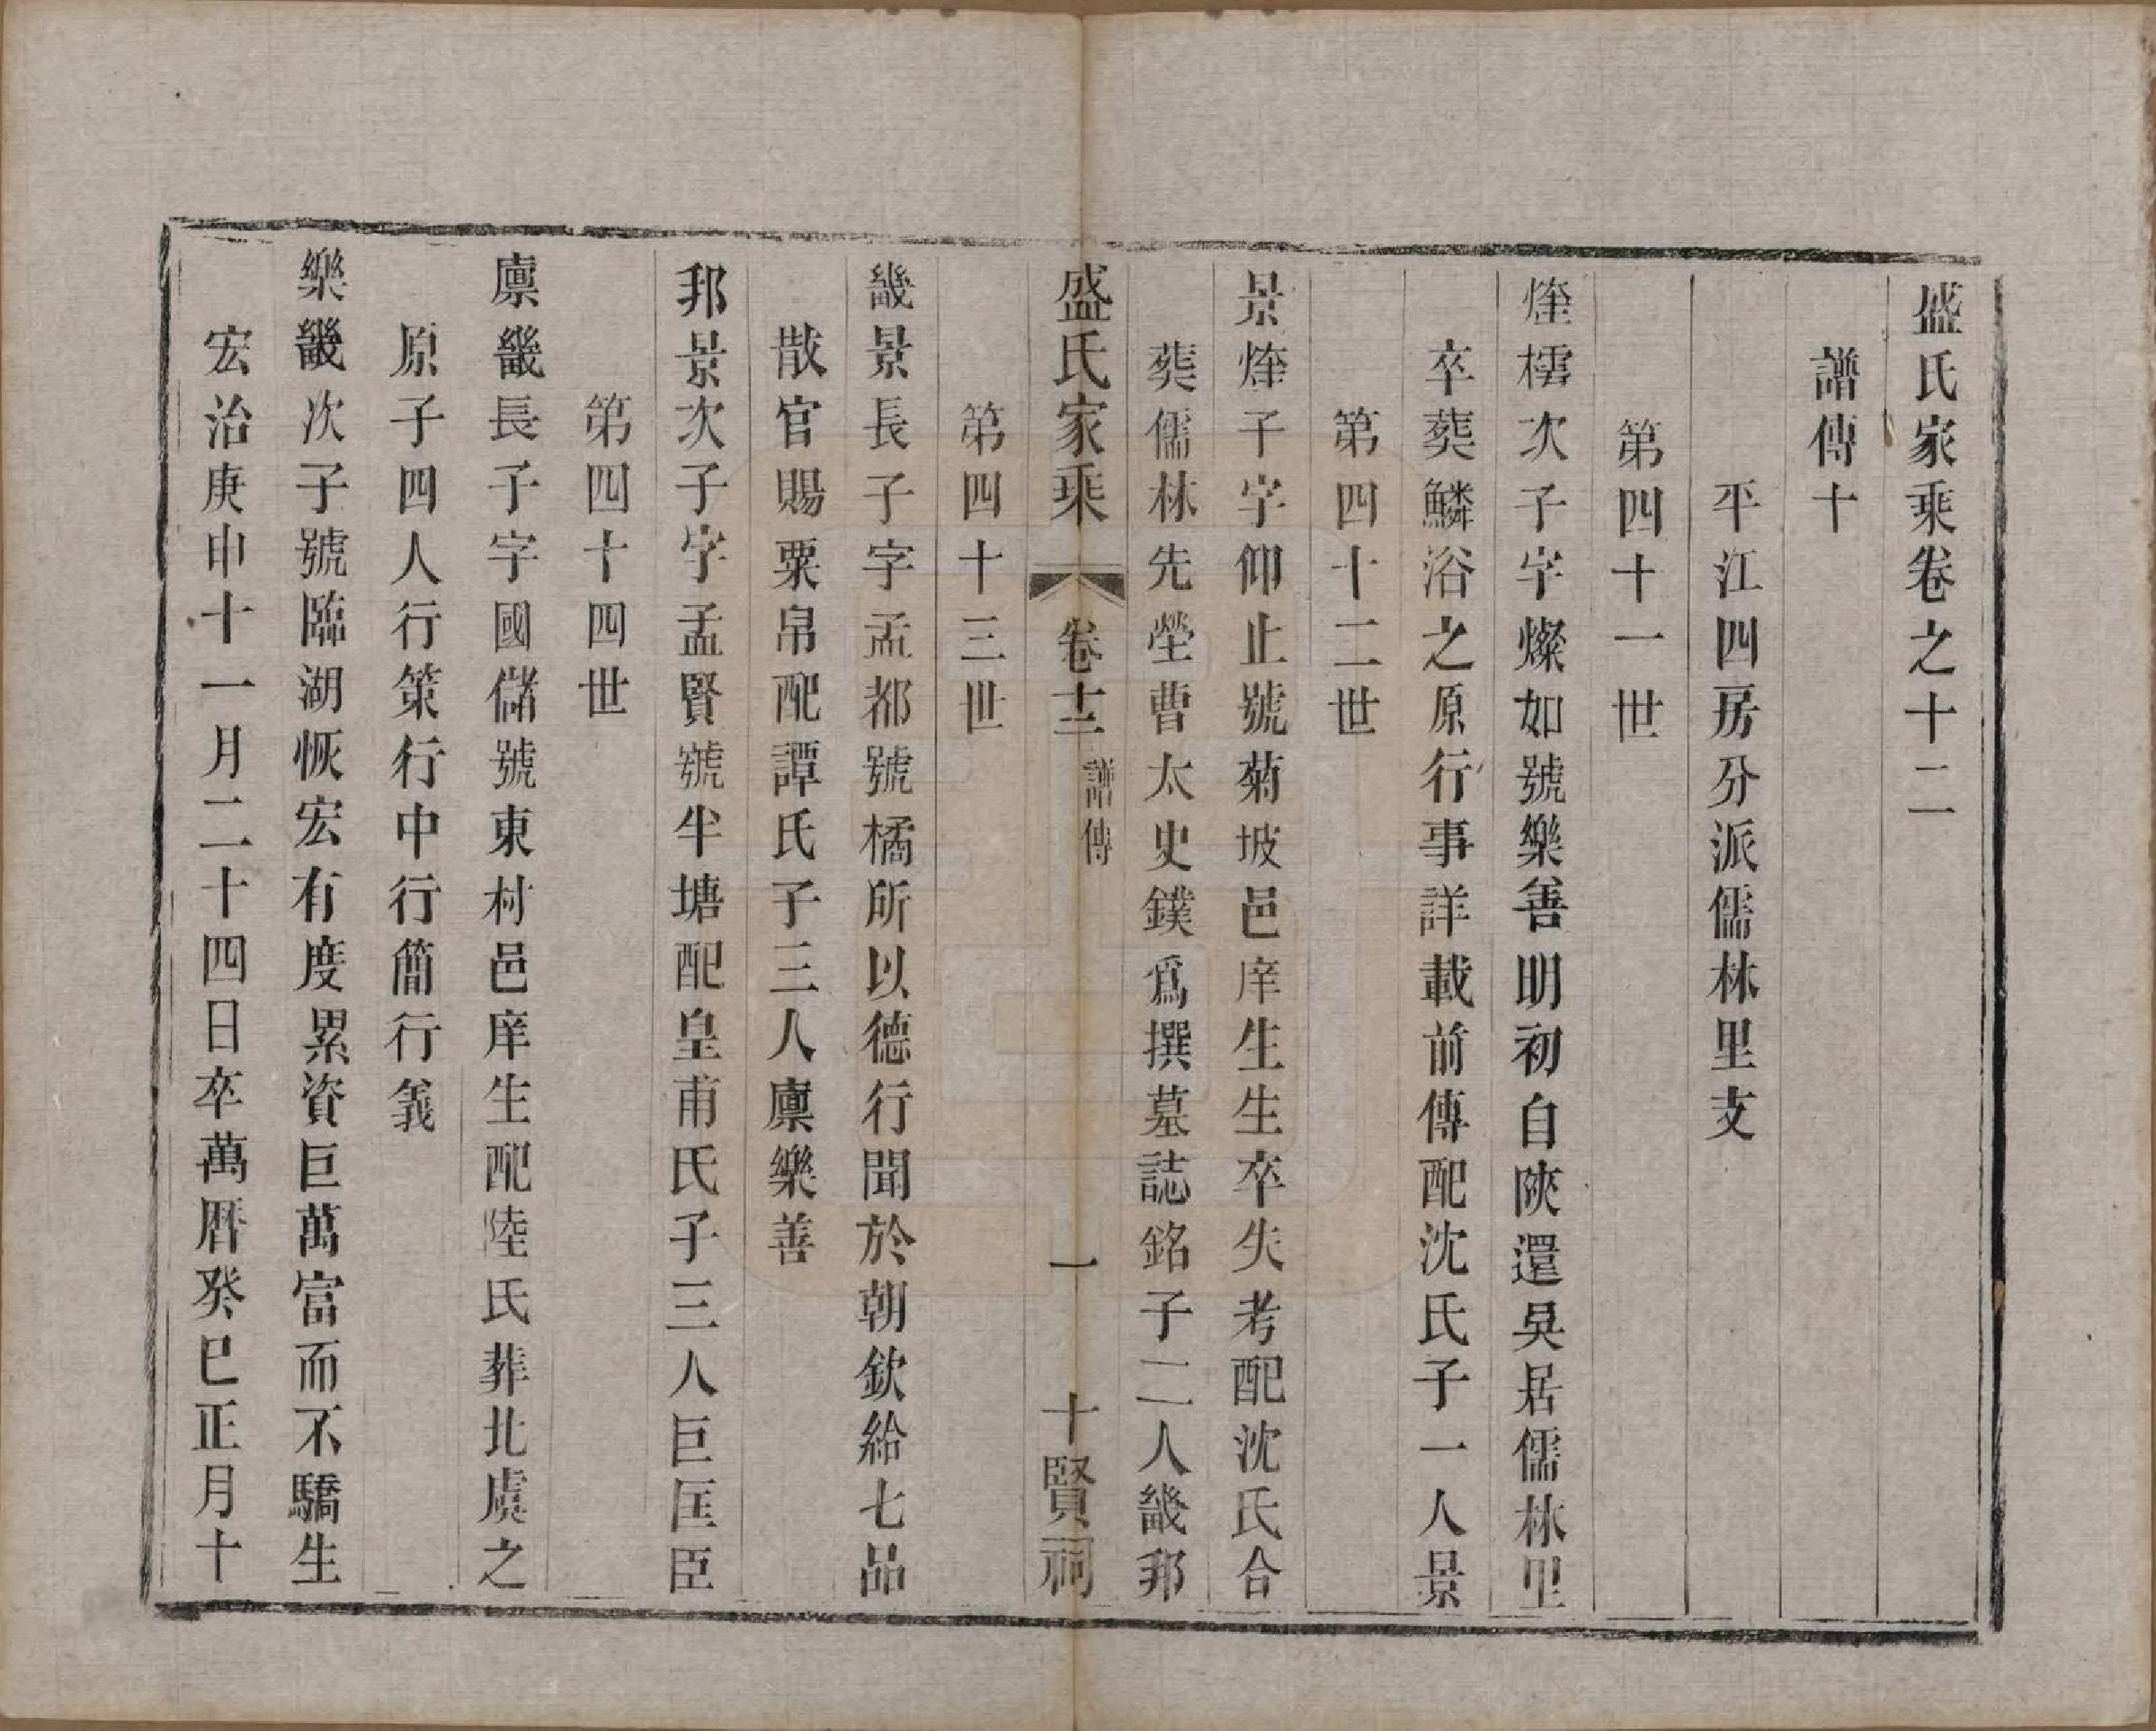 盛氏家乘卷之十二
譜傳十
平江四房分派儒林里支
第四十一世
煃樗次子字燦如號樂善明初自陝還吳居儒林里
卒葬鱗浴之原行事詳載前傳配沈氏子一人景
第四十二世
景煃子字仰止號菊坡邑庠生生卒失考配沈氏合
葬儒林先塋曹太史鏷爲撰墓誌銘子二人畿邦
盛氏家乘 卷十二 譜傳 一 十賢祠
第四十三世
畿景長子字孟都號橘所以德行聞於朝欽給七品
散官賜粟帛配譚氏子三人廪樂善
邦景次子字孟賢號半塘配皇甫氏子三人巨匡臣
第四十四世
廪畿長子字國儲號東村邑庠生配陸氏葬北虞之
原子四人行策行中行簡行義
樂畿次子號臨湖恢宏有度累資巨萬富而不驕生
宏治庚申十一月二十四日卒萬曆癸巳正月十